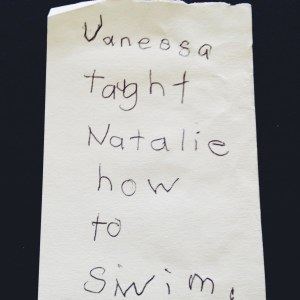 Vanessa
taght
Natalie
how
to
Swim.